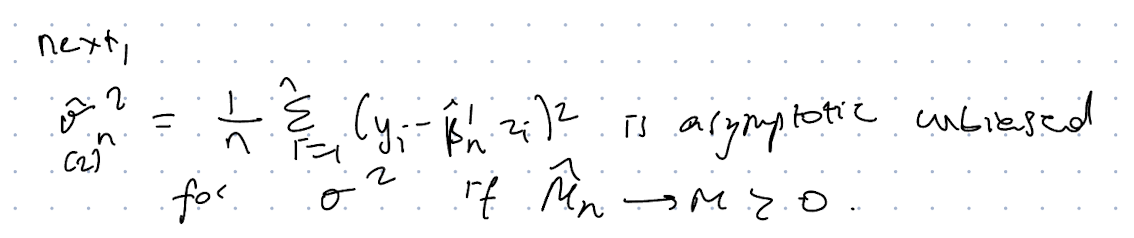 next,
σ̂²ₙ = 1/n Σⁿᵢ₌₁ (yᵢ - β̂'ₙ zᵢ)² is asymptotic unbiased
(2)
for σ² if M̂ₙ → M > 0.